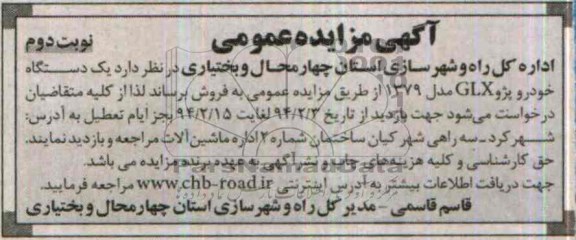 آگهی مزایده عمومی
نوبت دوم
اداره کل راه و شهرسازی استان چهارمحال و بختیاری در نظر دارد یک دستگاه
خودرو پژو GLX مدل ۱۳۷۹ از طریق مزایده عمومی به فروش برساند لذا از کلیه متقاضیان
درخواست می‌شود جهت بازدید از تاریخ ۹۴/۲/۳ لغایت ۹۴/۲/۱۵ بجز ایام تعطیل به آدرس:
شهرکرد - سه راهی شهر کیان ساختمان شماره ۲ اداره ماشین آلات مراجعه و بازدید نمایند.
حق کارشناسی و کلیه هزینه‌های چاپ و نشر آگهی به عهده برنده مزایده می باشد.
جهت دریافت اطلاعات بیشتر به آدرس اینترنتی www.chb-road.ir مراجعه فرمایید.
قاسم قاسمی - مدیر کل راه و شهرسازی استان چهارمحال و بختیاری
ParsNamadData